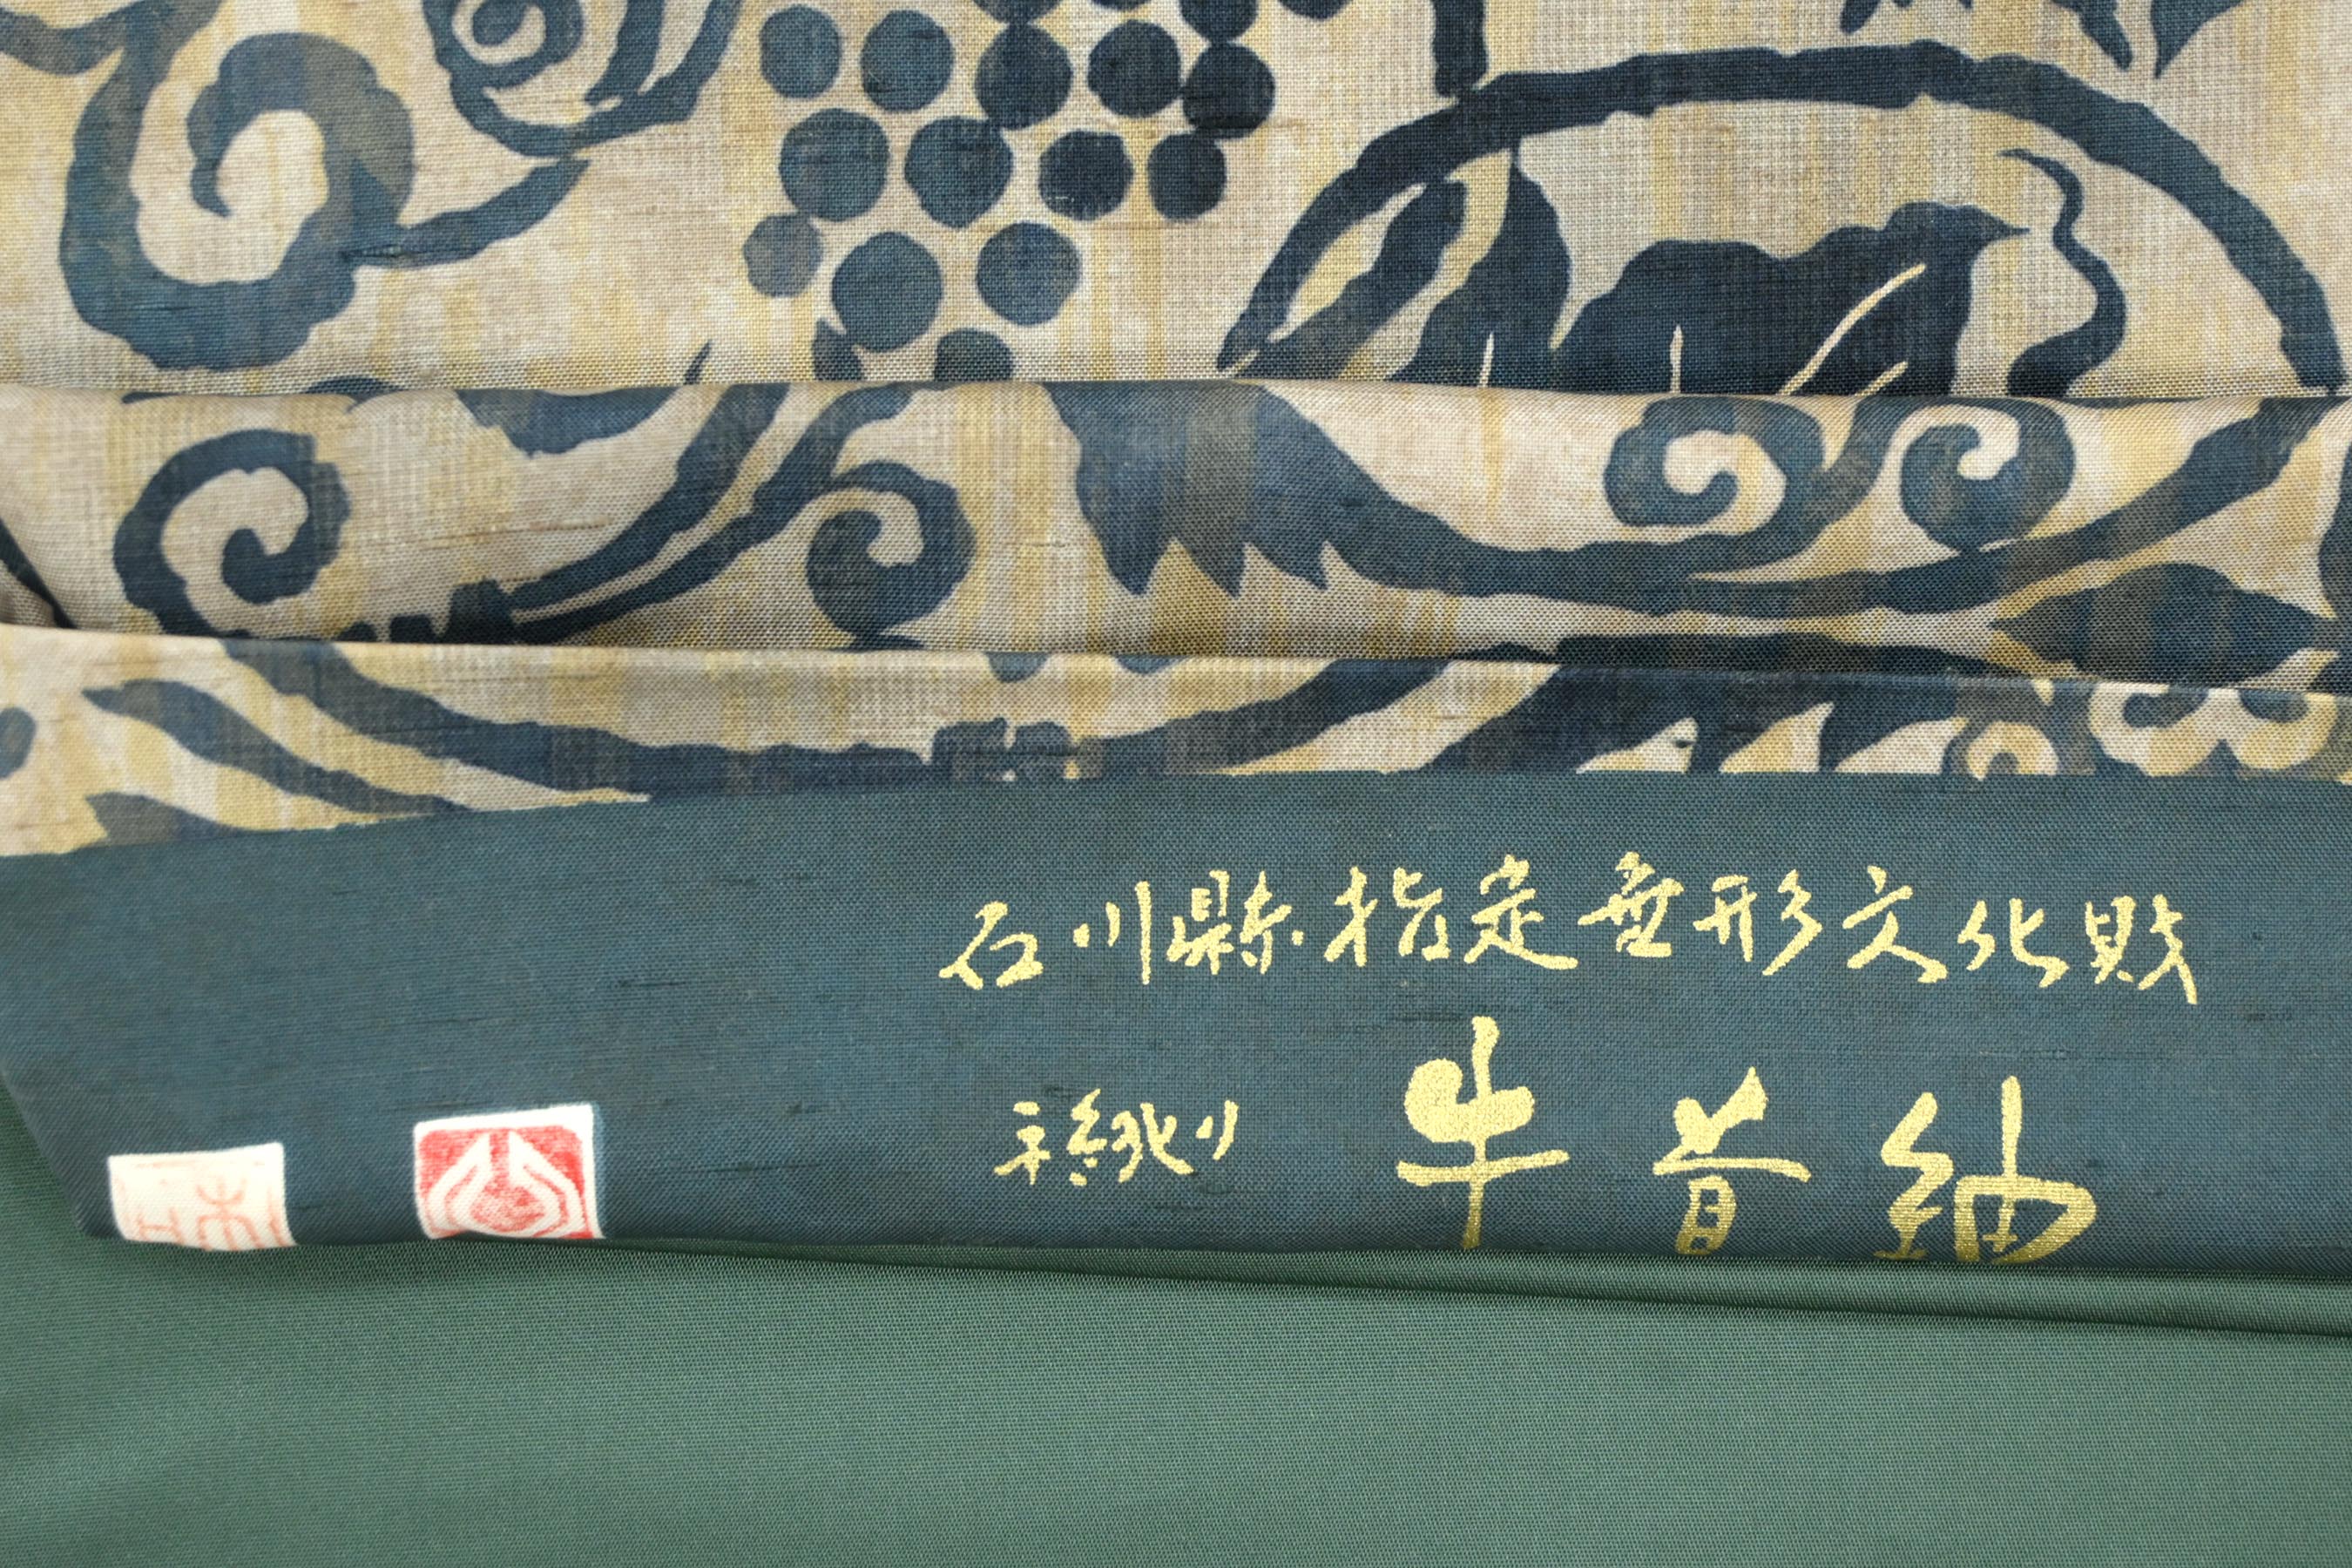 石川縣指定無形文化財
手挽織り 牛首紬